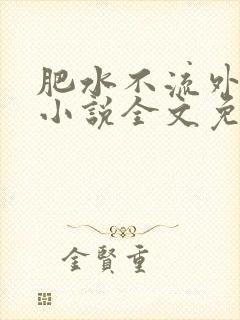 肥水不流外
小说全文免
金贤重